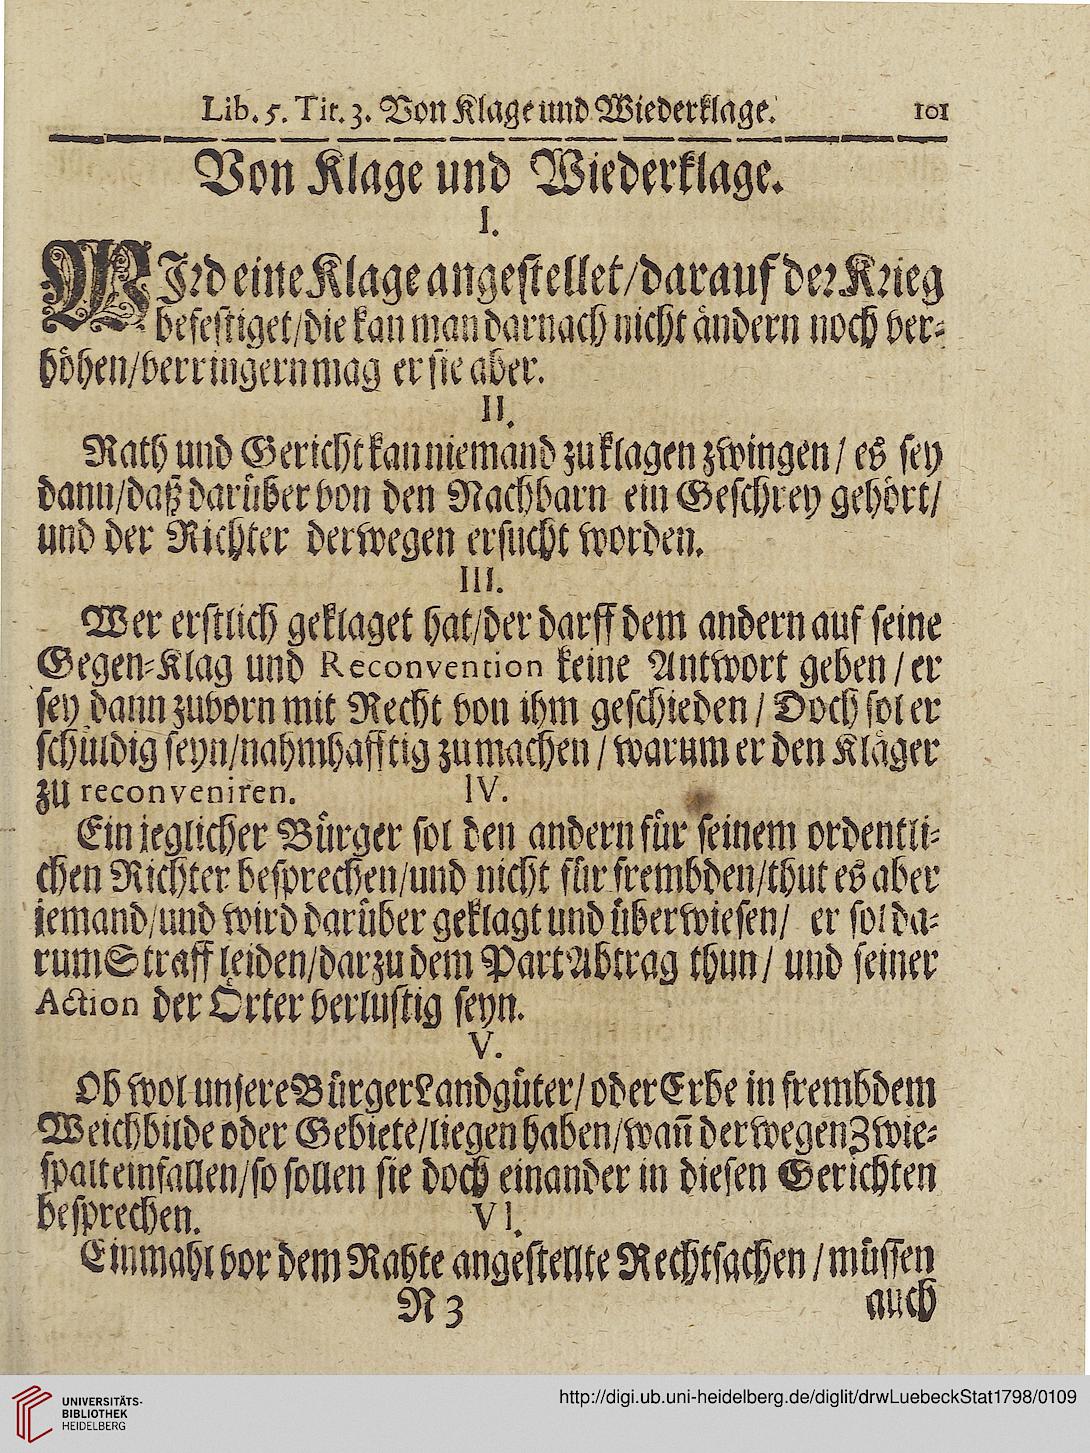 Lib. 5. Tit. 3. Von Klage und Wiederklage. 101
Von Klage und Wiederklage.
I.
WIrd eine Klage angestellet/darauf der Krieg
befestiget/die kan man darnach nicht ändern noch ver-
höhen/verringern mag er sie aber.
II.
Rath und Gericht kan niemand zu klagen zwingen/ es sey
dann/daß darüber von den Nachbarn ein Geschrey gehört/
und der Richter derwegen ersucht worden.
III.
Wer erstlich geklaget hat/der darff dem andern auf seine
Gegen-Klag und Reconvention keine Antwort geben/er
sey dann zuvorn mit Recht von ihm geschieden/Doch sol er
schuldig seyn/nahmhafftig zu machen/warum er den Kläger
zu reconveniren. IV.
Ein jeglicher Bürger sol den andern für seinem ordentli-
chen Richter besprechen/und nicht für frembden/thut es aber
jemand/und wird darüber geklagt und überwiesen/ er sol da-
rum Straff leiden/darzu dem Part Abtrag thun/ und seiner
Action der Örter verlustig seyn.
V.
Ob wol unsere Bürger Landgüter/ oder Erbe in frembdem
Weichbilde oder Gebiete/liegen haben/wañ derwegen Zwie-
spalt einfallen/so sollen sie doch einander in diesen Gerichten
besprechen. VI.
Einmahl vor dem Rahte angestellte Rechtsachen/müssen
N 3 auch
UNIVERSITÄTS-
BIBLIOTHEK
HEIDELBERG
http://digi.ub.uni-heidelberg.de/diglit/drwLuebeckStat1798/0109